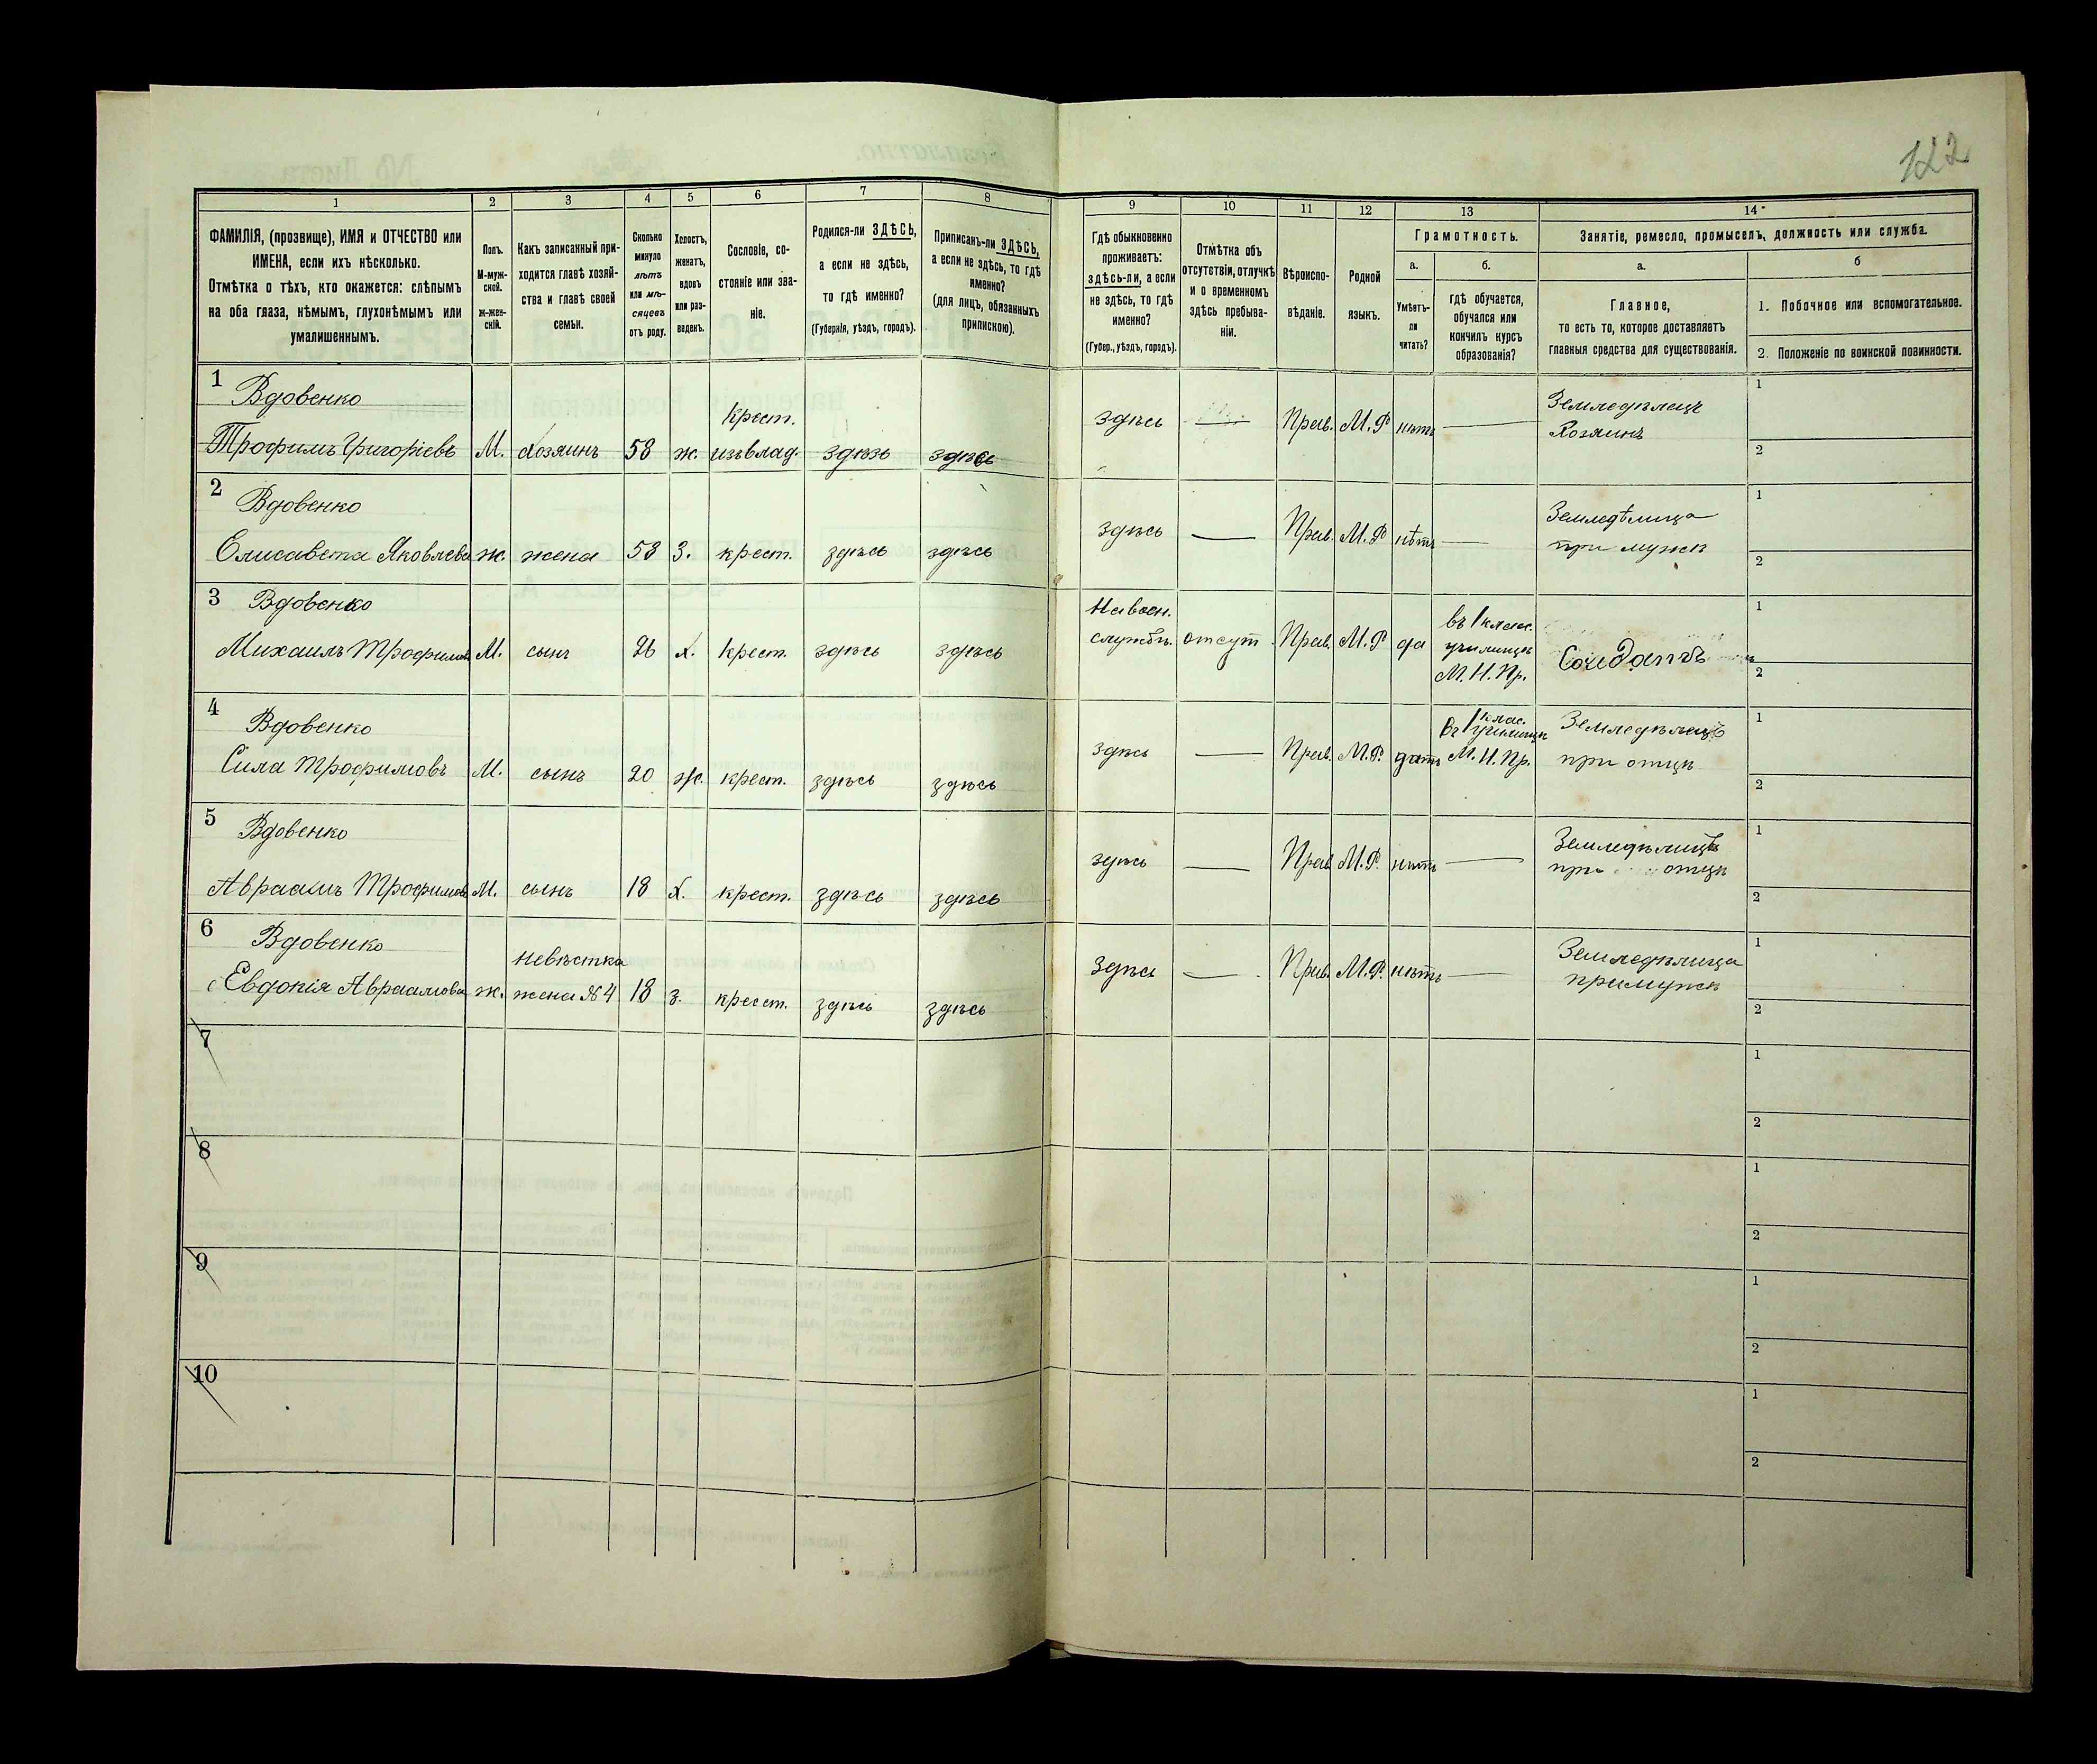 122
1
2
3
4
5
6
7
8
9
10
11
12
13
14
ФАМИЛІЯ, (прозвище), ИМЯ и ОТЧЕСТВО или
ИМЕНА, если ихъ нѣсколько.
Отмѣтка о тѣхъ, кто окажется: слѣпымъ
на оба глаза, нѣмымъ, глухонѣмымъ или
умалишеннымъ.
Полъ.
М-муж-
ской.
Ж-жен-
скій.
Какъ записанный при-
ходится главѣ хозяй-
ства и главѣ своей
семьи.
Сколько
минуло
лѣтъ
или мѣ-
сяцевъ
отъ роду.
Холостъ,
женатъ,
вдовъ
или раз-
веденъ.
Сословіе, со-
стояніе или зва-
ніе.
Родился-ли ЗДѢСЬ,
а если не здѣсь,
то гдѣ именно?
(Губернія, уѣздъ, городъ).
Приписанъ-ли ЗДѢСЬ,
а если не здѣсь, то гдѣ
именно?
(для лицъ, обязанныхъ
припискою).
Гдѣ обыкновенно
проживаетъ:
здѣсь-ли, а если
не здѣсь, то гдѣ
именно?
(Губер., уѣздъ, городъ).
Отмѣтка объ
отсутствіи, отлучкѣ
и о временномъ
здѣсь пребыва-
ніи.
Вѣроиспо-
вѣданіе.
Родной
языкъ.
Грамотность.
а.
Умѣетъ-
ли
читать?
б.
гдѣ обучается,
обучался или
кончилъ курсъ
образованія?
Занятіе, ремесло, промыселъ, должность или служба.
а.
Главное,
то есть то, которое доставляетъ
главныя средства для существованія.
б
1. Побочное или вспомогательное.
2. Положеніе по воинской повинности.
1
Вдовенко
Трофимъ Григоріевъ М. хозяинъ 58 ж. крест. изъ влад. здѣсь здѣсь
здѣсь — Прав. М.Р нѣтъ — Земледѣлецъ
Хозяинъ
1
2
2
Вдовенко
Елисавета Яковлева ж. жена 58 З. крест. здѣсь здѣсь
здѣсь — Прав. М.Р нѣтъ — Земледѣлица
при мужѣ
1
2
3 Вдовенко
Михаилъ Трофимовъ М. сынъ 26 х. крест. здѣсь здѣсь
На воен.
службѣ отсут. Прав. М.Р да
въ 1 клас.
училищѣ
М.Н.Пр.
Солдатъ
1
2
4
Вдовенко
Сила Трофимовъ М. сынъ 20 ж. крест. здѣсь здѣсь
здѣсь — Прав. М.Р.
въ 1 клас.
училищѣ
М.Н.Пр.
Земледѣлецъ
при отцѣ
1
2
5
Вдовенко
Авраамъ Трофимовъ М. сынъ 18 х. крест. здѣсь здѣсь
здѣсь — Прав М.Р. нѣтъ — Земледѣлецъ
при отцѣ
1
2
6
Вдовенко
невѣстка
Евдокія Авраамова ж. жена №4 18 з. крест. здѣсь здѣсь
здѣсь — Прав. М.Р. нѣтъ — Земледѣлица
при мужѣ
1
2
7
1
2
8
1
2
9
1
2
10
1
2